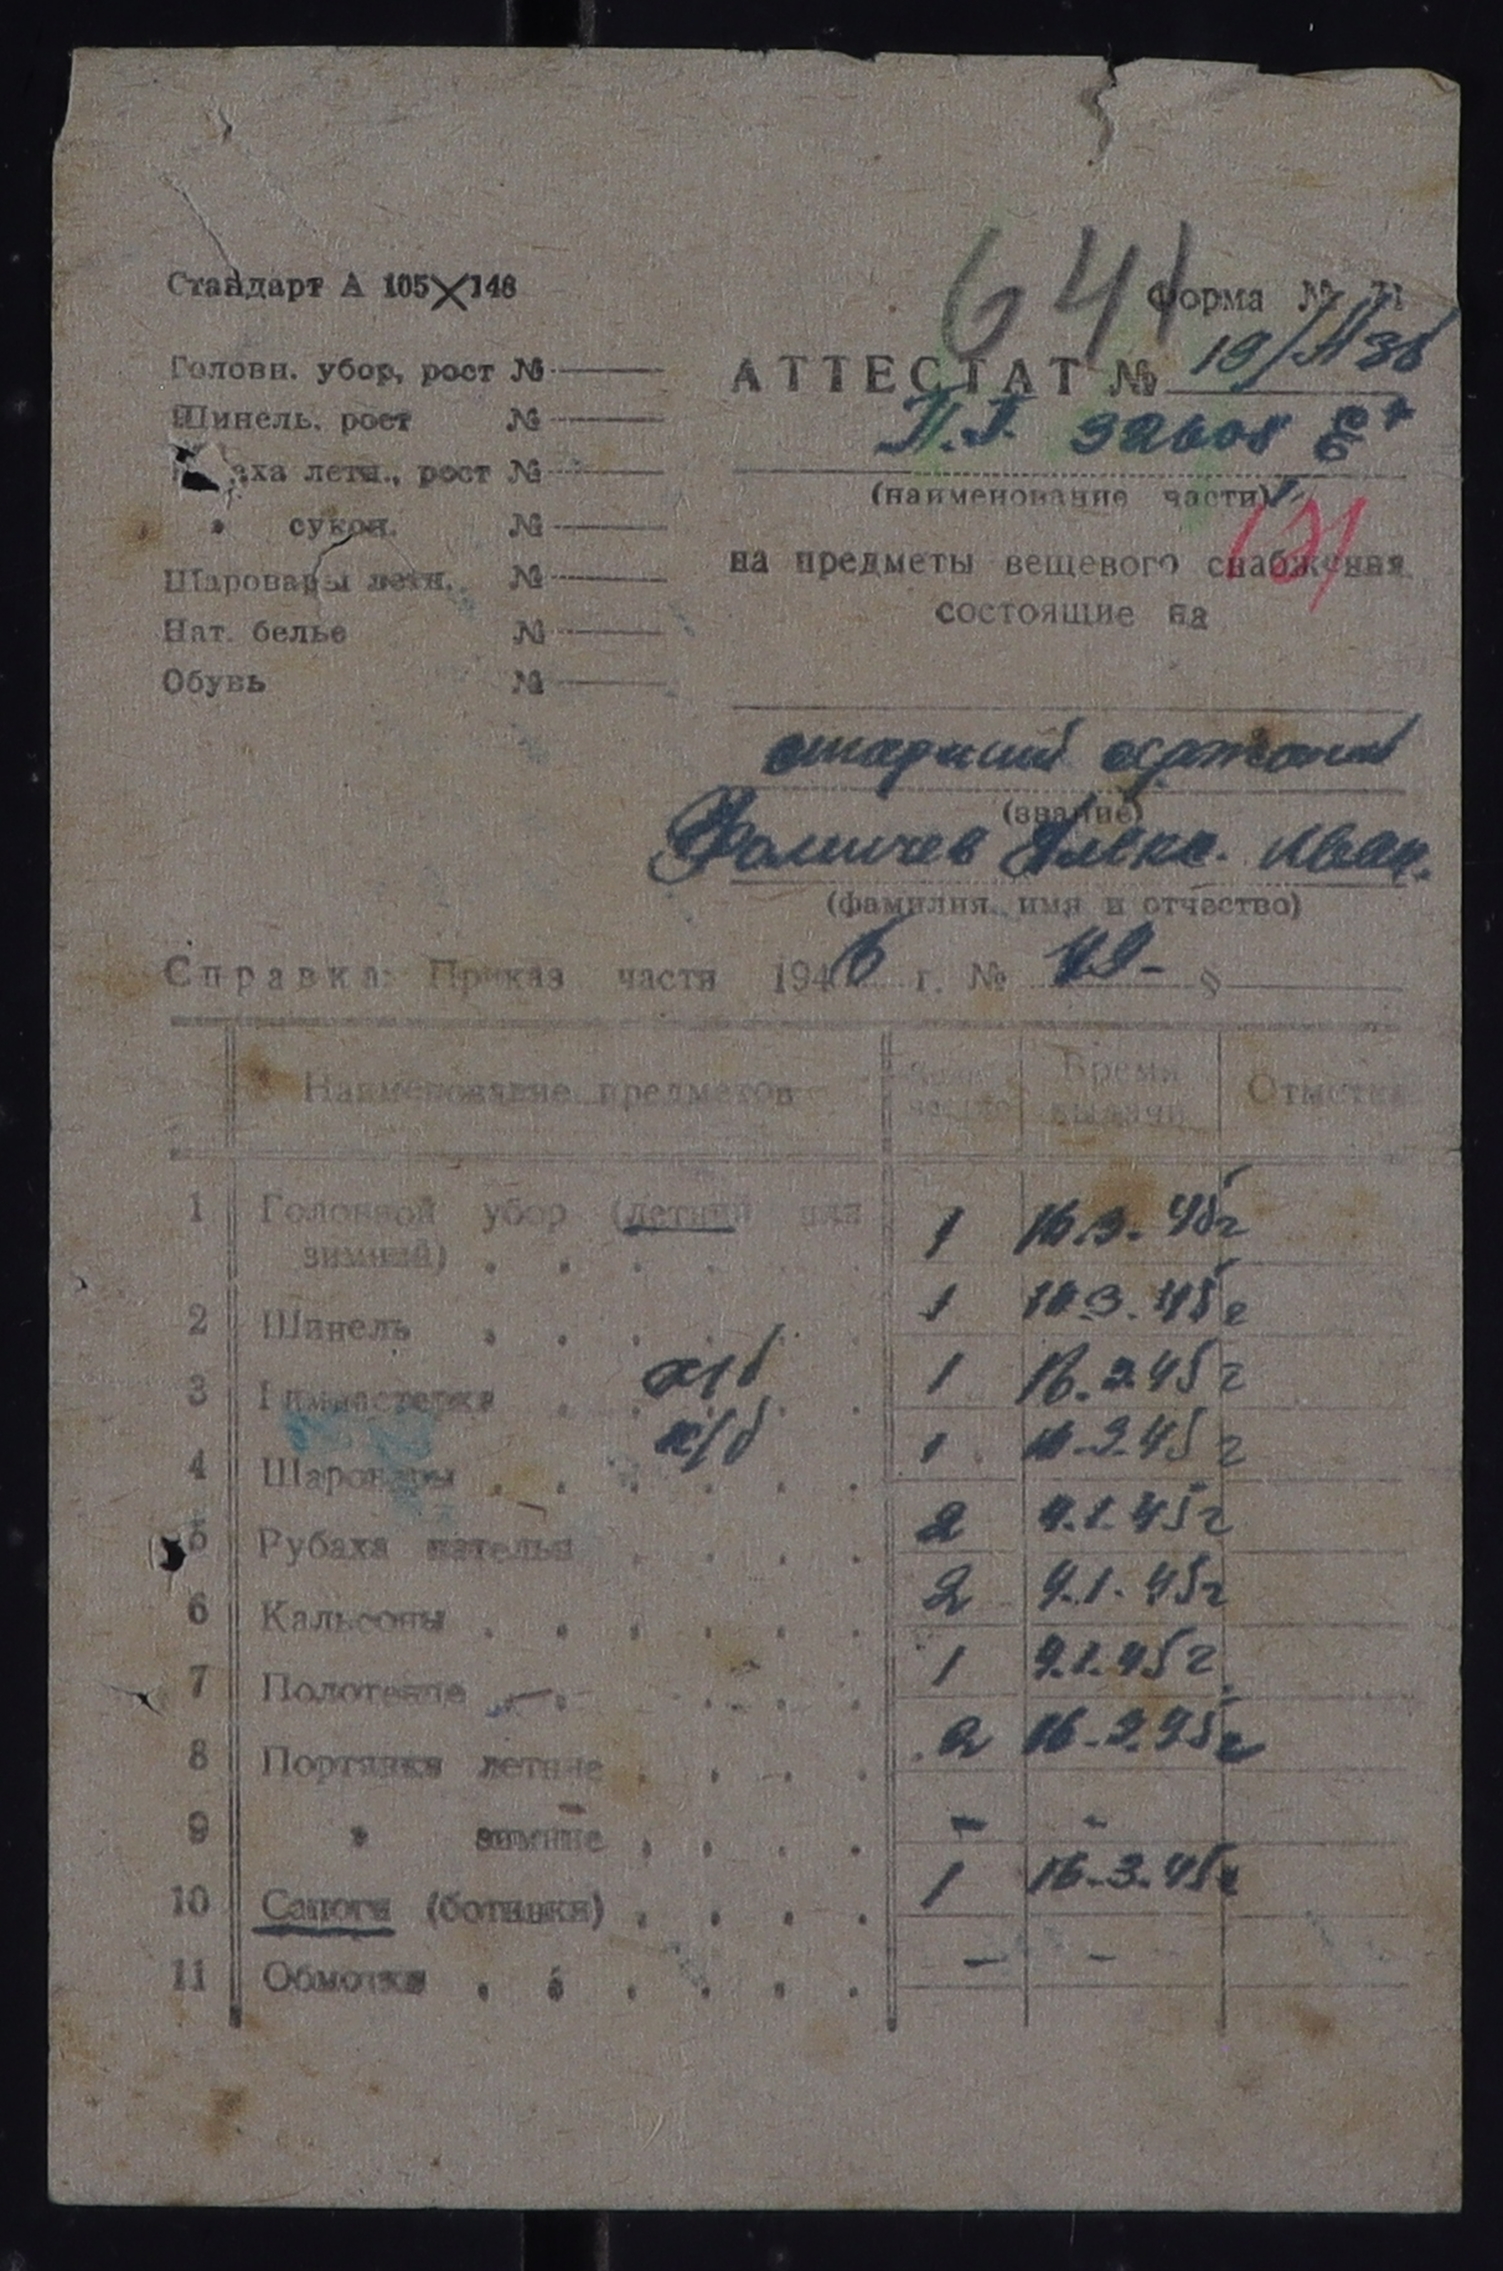 641
Стандарт А 105×148
Форма № 71
Головн. убор, рост №
Шинель, рост №
аха летн., рост №
" сукон. №
Шаровары летн. №
Нат. белье №
Обувь №
АТТЕСТАТ № 19/
32608
(наименование части)
на предметы вещевого снабжения
состоящие на
старший сержант
(звание)
Фомичев Алекс. Иван.
(фамилия, имя и отчество)
Справка: Приказ части 1946 г. № 49- §
Наименование предметов Время выдачи Отметка
1 Головной убор (летний или зимний) 1 16.3.45г
2 Шинель 1 10.3.45г
3 Гимнастерка х/б 1 16.3.45г
4 Шаровары х/б 1 16.3.45г
5 Рубаха нательн 2 9.1.45г
6 Кальсоны 2 9.1.45г
7 Полотенце 1 9.1.45г
8 Портянки летние 2 16.3.45г
9 " зимние - -
10 Сапоги (ботинки) 1 16.3.45г
11 Обмотки - -